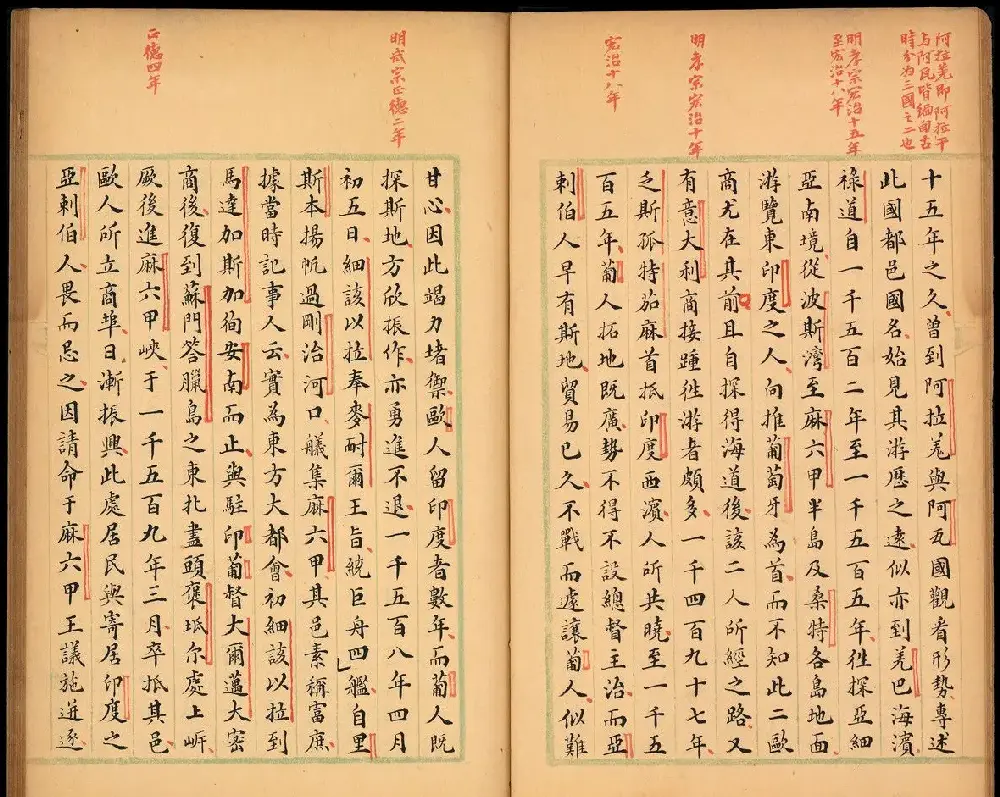 阿拉羌即阿拉干
与阿瓦皆緬甸古
時分为三國之二也
明孝宗宏治十五年
至宏治十八年
明孝宗宏治十年
宏治十八年
十五年之久曾到阿拉羌與阿瓦國觀看形勢專述
此國都邑國名始見其游歷之遠似亦到羌巴海濱
祿道自一千五百二年至一千五百五年徃探亞細
亞南境從波斯灣至麻六甲半島及桑特各島地面
游覽東印度之人向推葡萄牙為首而不知此二歐
商尤在其前且自探得海道後該二人所經之路又
有意大利商接踵徃游者頗多一千四百九十七年
乏斯孤特茄麻首抵印度西濱人所共曉至一千五
百五年葡人拓地既廣勢不得不設總督主治而亞
剌伯人早有斯地貿易已久不戰而遽讓葡人似難
明武宗正德二年
正德四年
甘心因此竭力堵禦歐人留印度者數年而葡人既
探斯地方欣振作亦勇進不退一千五百八年四月
初五日細該以拉奉麥耐爾王旨統巨舟四艦自里
斯本揚帆過剛治河口艤集麻六甲其邑素稱富庶
據當時記事人云實為東方大都會初細該以拉到
馬達加斯加徇安南而止與駐印葡督大爾邁大密
商後復到蘇門答臘島之東北盡頭褒珎尔處上岍
厥後進麻六甲峽于一千五百九年三月卒抵其邑
歐人所立商埠日漸振興此處居民與寄居印度之
亞剌伯人畏而忌之因請命于麻六甲王議施迸逐